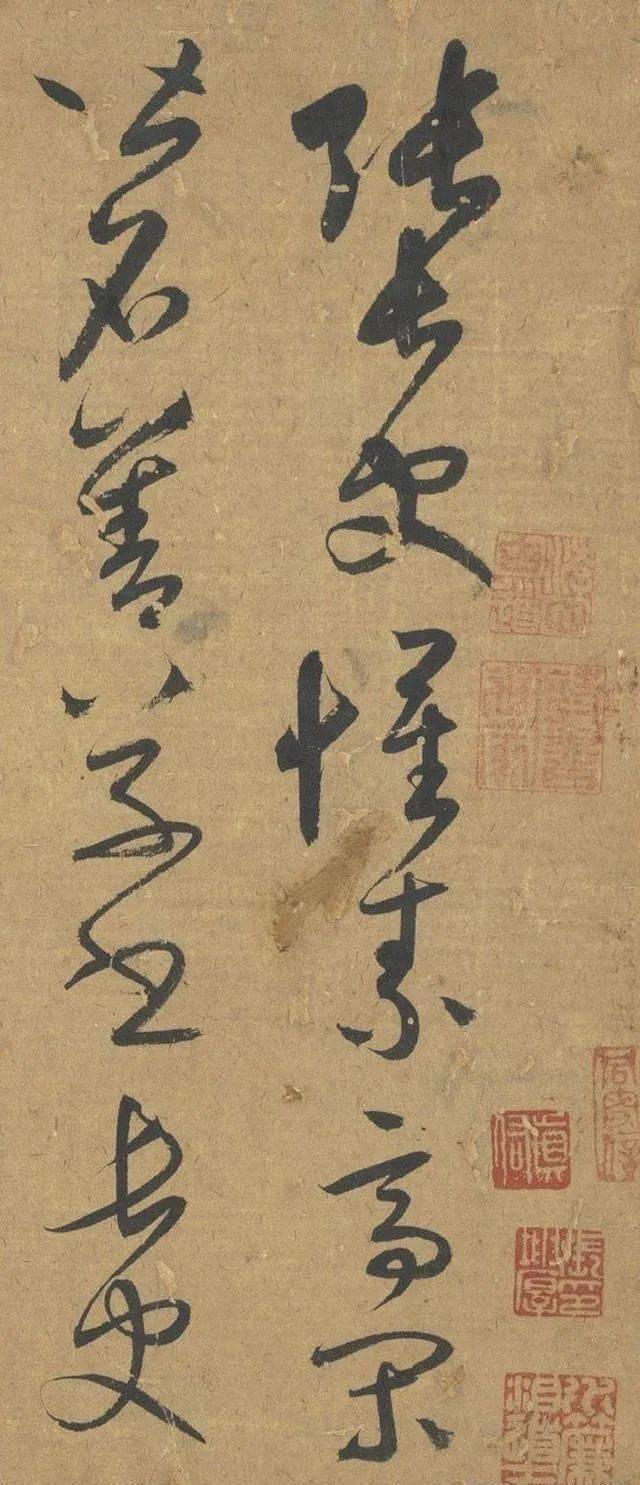 張長史懷素高閑
皆名善草書長史